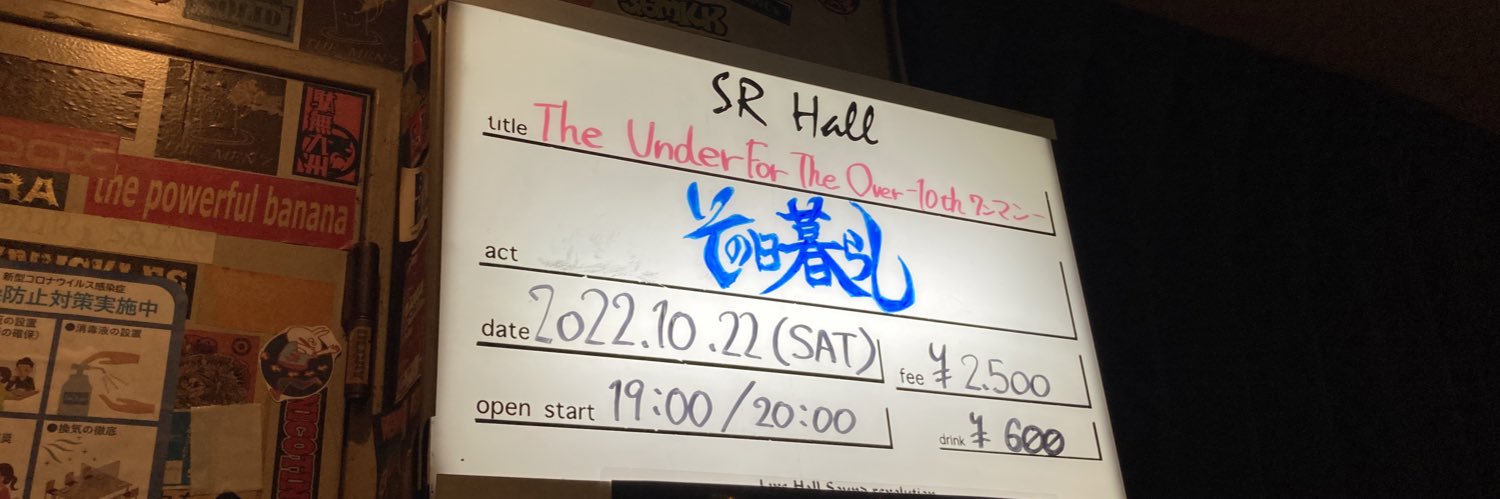 SR Hall
title The Under For The Over -10th ワンマン-
act その日暮らし
date 2022.10.22 (SAT)
fee ¥2.500
open start 19:00/20:00
drink ¥600
the powerful banana
RA
新型コロナウイルス感染症
防止対策実施中
の設置
の確保)
●消毒液の設置
●換気の徹底